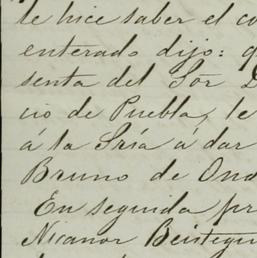 le hice saber el co
enterado dijo: q
senta del Sōr D
cio de Puebla, le
á la Sría á dar
Bruno de Ond
En seguida pr
Nicanor Beistegui